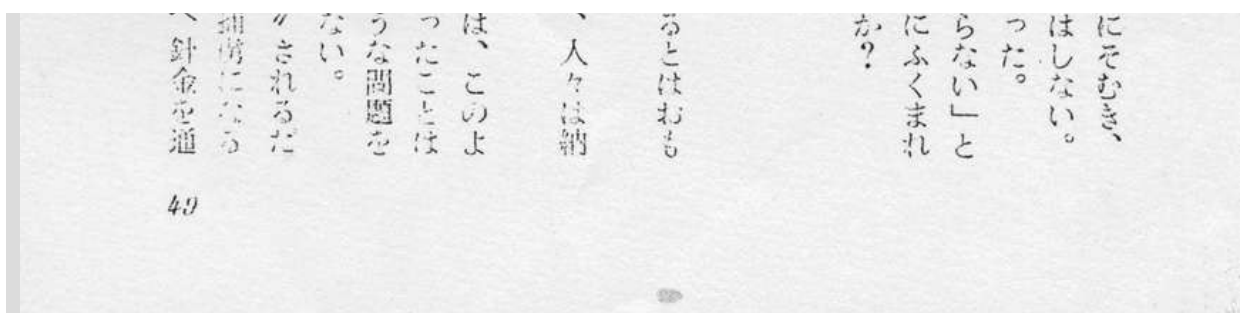 にそむき、
はしない。
った。
らない」と
にふくまれ
か？
るとはおも
、人々は納
は、このよ
ったことは
うな問題を
ない。
〃されるだ
捕虜になる
へ針金を通
49